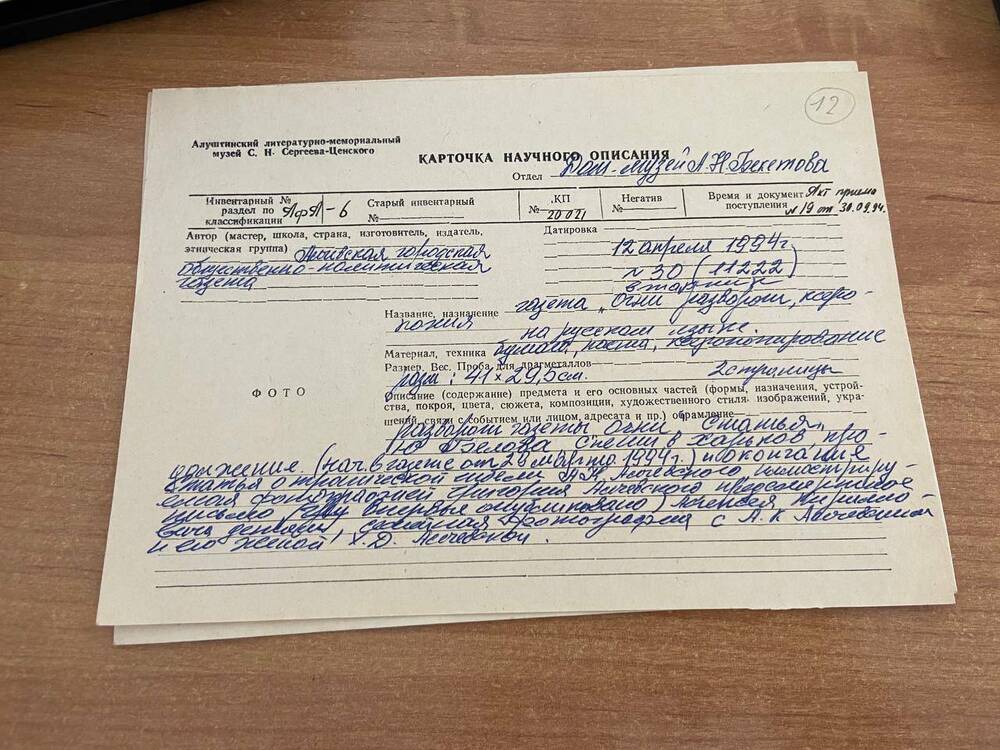 12
Алуштинский литературно-мемориальный
музей С. Н. Сергеева-Ценского
КАРТОЧКА НАУЧНОГО ОПИСАНИЯ
Отдел Дом-музей А.Н.Бекетова
Инвентарный №
раздел по
классификации АфА-6
Старый инвентарный
№
КП
№ 20021
Негатив
№
Время и документ
поступления Акт приема
№19 от 30.09.94.
Автор (мастер, школа, страна, изготовитель, издатель,
этническая группа) городская
общественно-политическая
газета
Датировка
12 апреля 1994г
№30 (11222)
вторник
Название, назначение газета „Огни разворот, ксеро-
копия
на русском языке.
Материал, техника бумага, паста, ксерокопирование
Размер. Вес. Проба для драгметаллов
разм: 41×29,5см. 2 страницы
ФОТО
Описание (содержание) предмета и его основных частей (формы, назначения, устрой-
ства, покроя, цвета, сюжета, композиции, художественного стиля изображений, укра-
шений, связи с событием или лицом, адресата и пр.) обрамление
разворот газеты „Огни". Статья
Ю Белова Спеши в Харьков, про-
должение. (нач. в газете от 29 марта 1994г.) и окончание
статья о трагической гибели А.К. Алчевского иллюстриру-
емая фотографией Григория Алчевского предсмертное
письмо (впервые опубликовано) Алексея Кирилло-
вича детям, семейная фотография с А.К Алчевским
и его женой Х.Д. Алчевской.